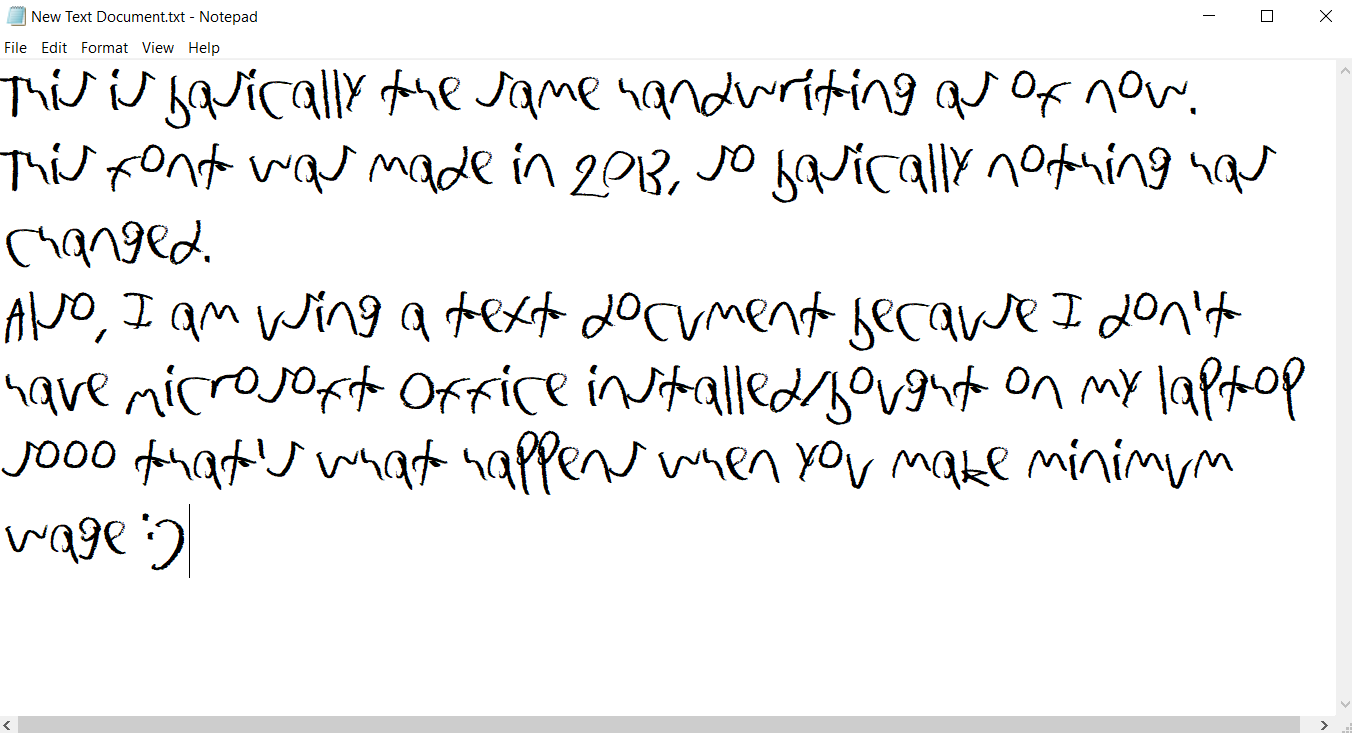 New Text Document.txt - Notepad
File Edit Format View Help
This is basically the same handwriting as of now.
This font was made in 2013, so basically nothing has
changed.
Also, I am using a text document because I don't
have microsoft office installed/bought on my laptop
sooo that's what happens when you make minimum
wage :')